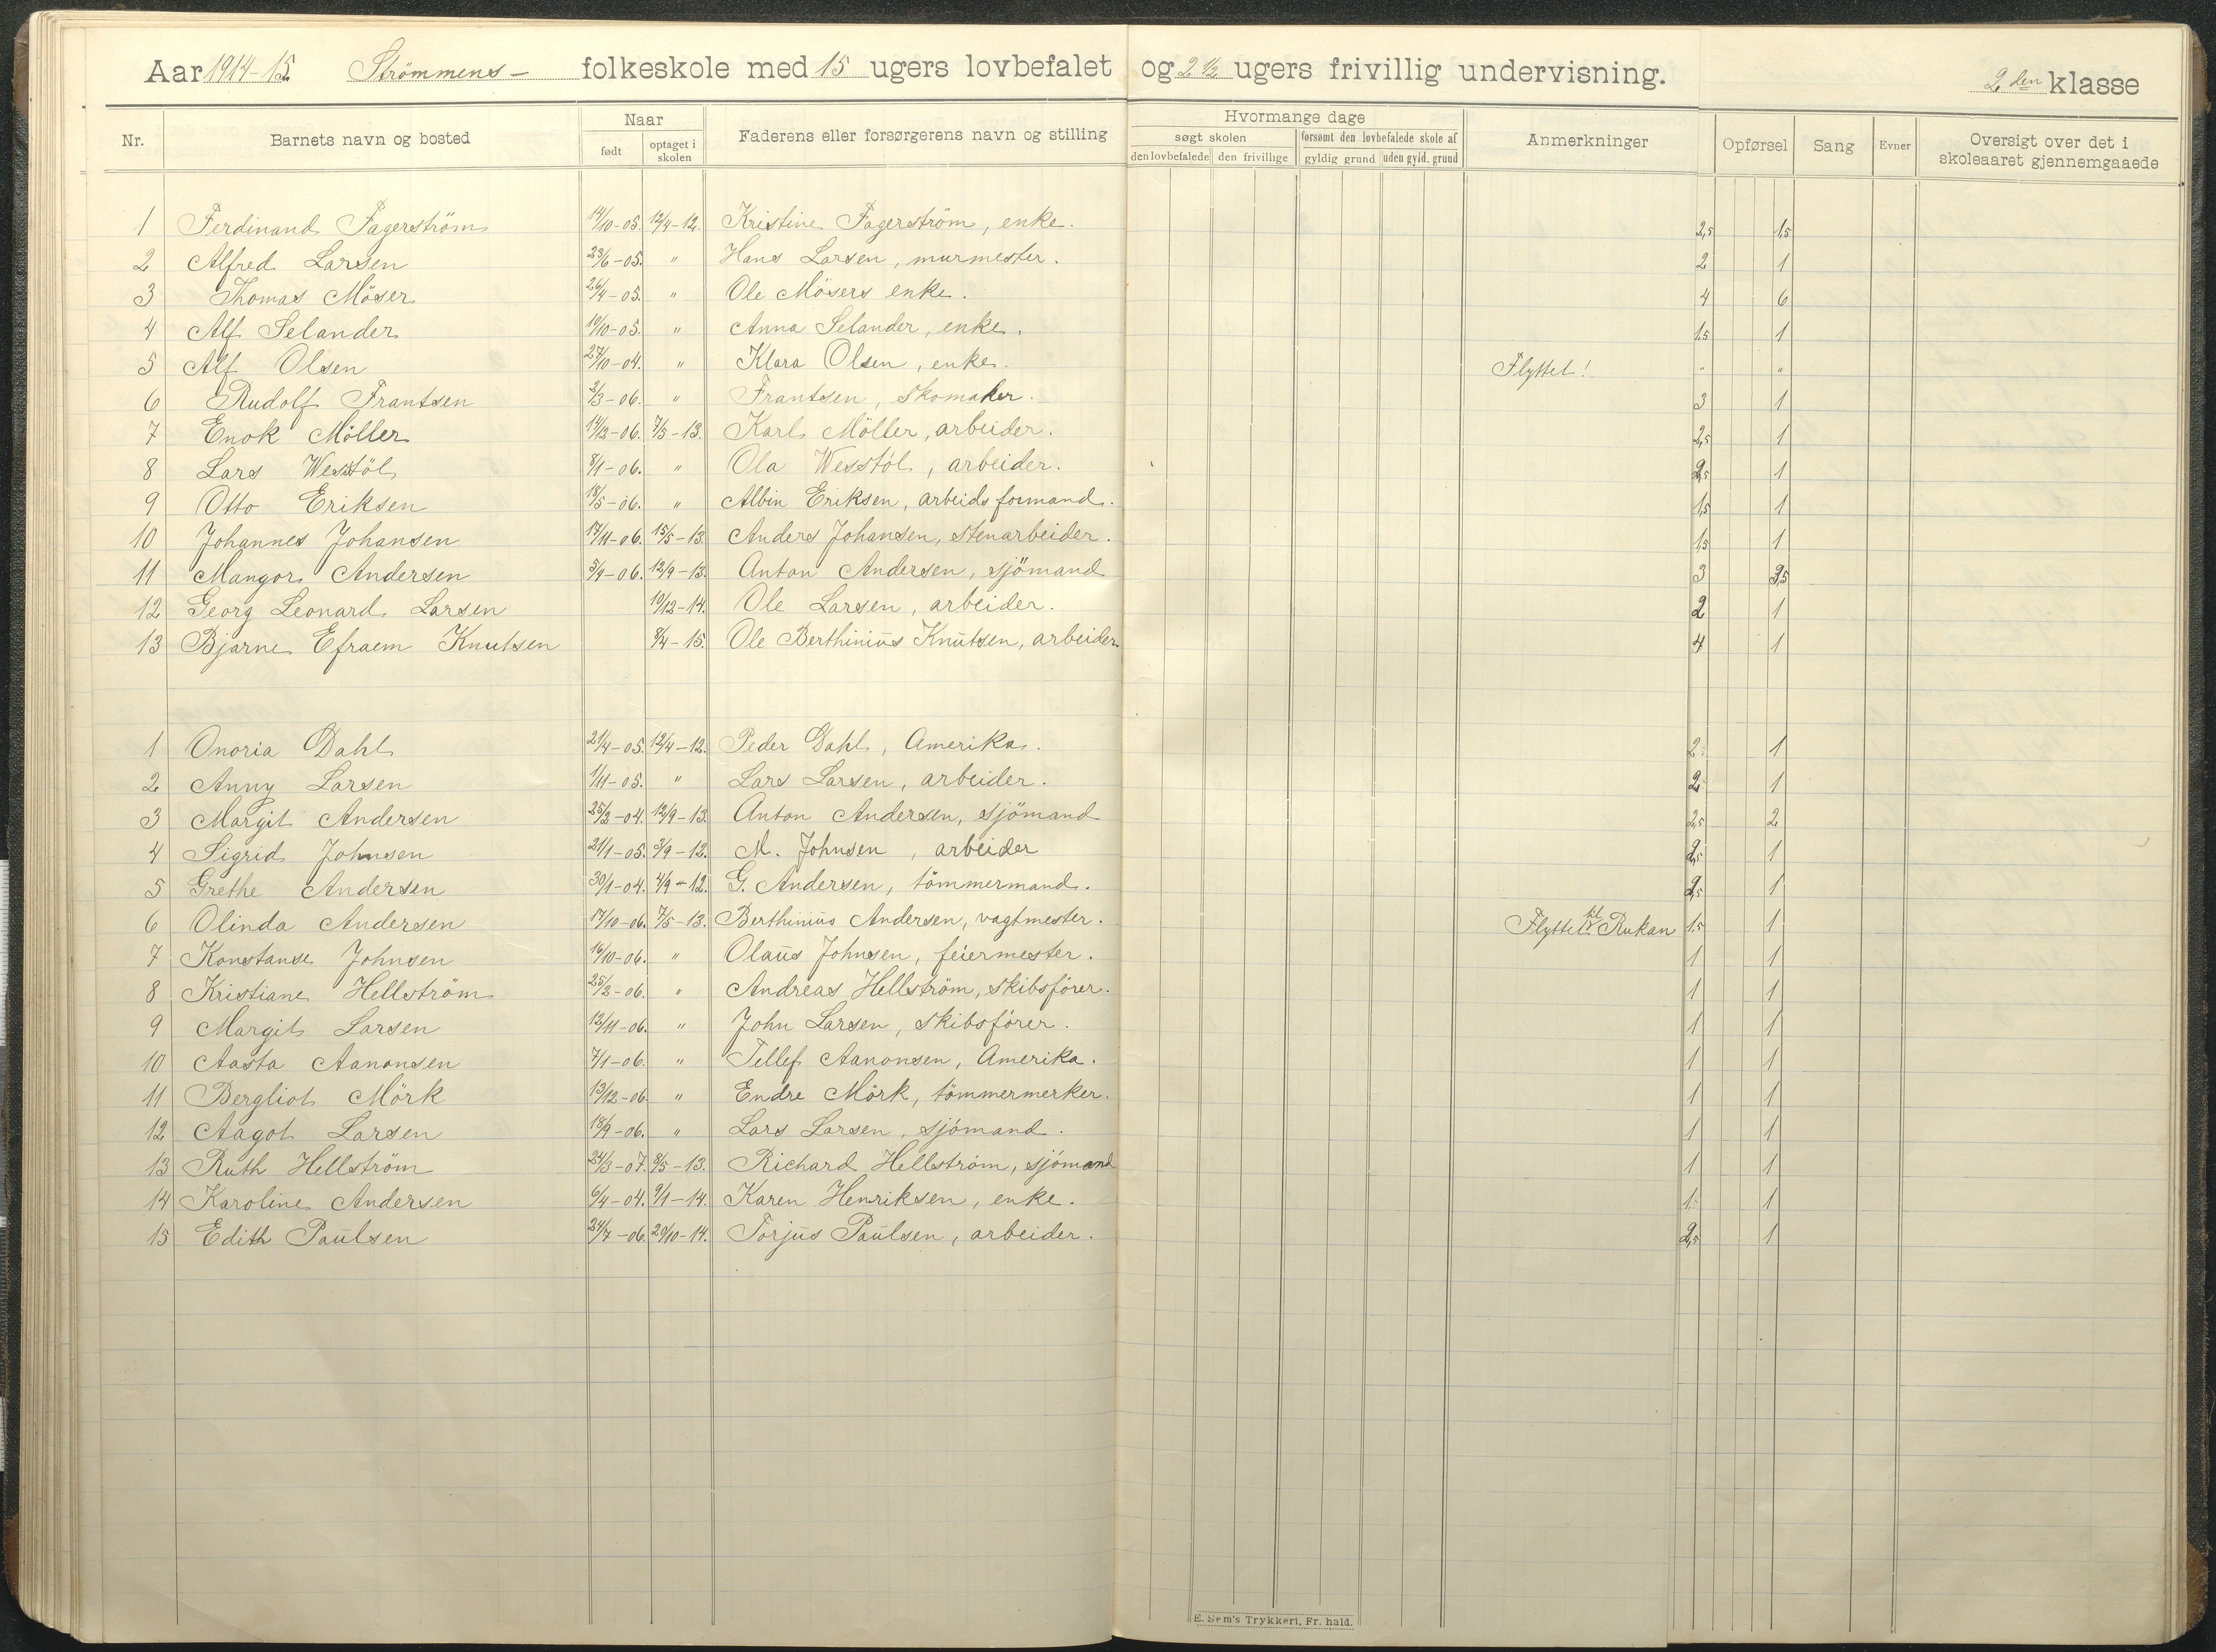 Aar 1914-15. Strömmens- folkeskole med 15 ugers lovbefalet og 2 1/2 ugers frivillig undervisning. 2den klasse
Nr. Barnets navn og bosted Naar født optaget i skolen Faderens eller forsørgerens navn og stilling Hvormange dage søgt skolen den lovbefalede den frivillige forsømt den lovbefalede skole af gyldig grund uden gyld. grund Anmerkninger Opførsel Sang Evner Oversigt over det i skoleaaret gjennemgaaede
1 Ferdinand Fagerström 14/10-05. 12/4-12. Kristine Fagerström, enke. 2,5 1,5
2 Alfred Larsen 23/6-05. " Hans Larsen, murmester. 2 1
3 Thomas Möser 26/4-05. " Ole Mösers enke. 4 6
4 Alf Selander 10/10-05. " Anna Selander, enke. 1,5 1
5 Alf Olsen 27/10-04. " Klara Olsen, enke. Flyttet! " "
6 Rudolf Frantsen 2/3-06. " Frantsen, skomaker. 3 1
7 Enok Möller 14/12-06. 7/5-13. Karl Möller, arbeider. 2,5 1
8 Lars Wesstöl 8/1-06. " Ola Wesstöl, arbeider. 2,5 1
9 Otto Eriksen 18/5-06. " Albin Eriksen, arbeidsformand. 1,5 1
10 Johannes Johansen 17/11-06. 15/5-13. Anders Johansen, stenarbeider. 1,5 1
11 Mangor Andersen 5/9-06. 12/9-13. Anton Andersen, sjömand 3 3,5
12 Georg Leonard Larsen 10/12-14. Ole Larsen, arbeider. 2 1
13 Bjarne Efraem Knutsen 8/4-15. Ole Berthinius Knutsen, arbeider 4 1
1 Onoria Dahl 21/4-05. 12/4-12. Peder Dahl, Amerika. 2 1
2 Anny Larsen 1/11-05. " Lars Larsen, arbeider. 2 1
3 Margit Andersen 25/2-04. 12/9-13. Anton Andersen, sjömand 2,5 2
4 Sigrid Johnsen 21/1-05. 3/9-12. M. Johnsen, arbeider 2,5 1
5 Grethe Andersen 30/1-04. 4/9-12. G. Andersen, tömmermand. 2,5 1
6 Olinda Andersen 17/10-06. 7/5-13. Berthinius Andersen, vagtmester. Flyttet til Rukan 1,5 1
7 Konstanse Johnsen 16/10-06. " Olaus Johnsen, feiermester. 1 1
8 Kristiane Hellström 25/2-06. " Andreas Hellström, skibsförer. 1 1
9 Margit Larsen 12/11-06. " John Larsen, skibsförer. 1 1
10 Aasta Aanonsen 7/1-06. " Tellef Aanonsen, Amerika. 1 1
11 Bergliot Mörk 13/12-06. " Endre Mörk, tömmermerker. 1 1
12 Aagot Larsen 18/9-06. " Lars Larsen, sjömand. 1 1
13 Ruth Hellström 24/3-07. 8/5-13. Richard Hellström, sjömand 1 1
14 Karoline Andersen 6/4-04. 9/1-14. Karen Henriksen, enke. 1 1
15 Edith Paulsen 24/7-06. 20/10-14. Torjus Paulsen, arbeider. 2,5 1
E. Sem's Trykkeri, Fr. hald.